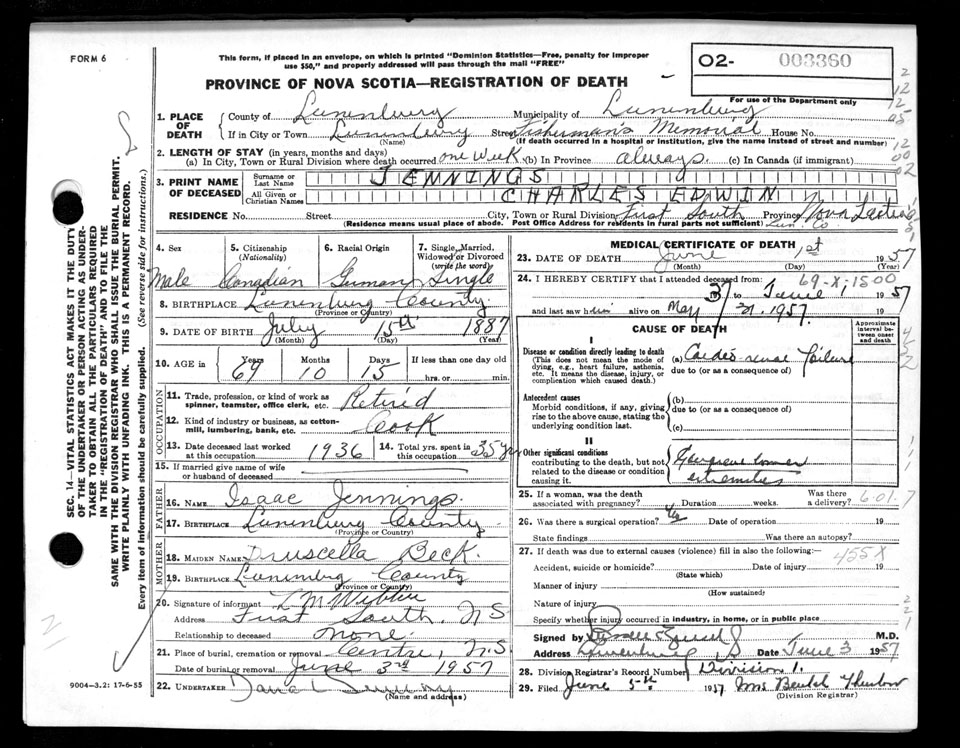 FORM 6
This form, if placed in an envelope, on which is printed "Dominion Statistics—Free, penalty for improper
use $50," and properly addressed will pass through the mail "FREE"
PROVINCE OF NOVA SCOTIA—REGISTRATION OF DEATH
O2- 003360
For use of the Department only
SEC. 14—VITAL STATISTICS ACT MAKES IT THE DUTY
OF THE UNDERTAKER OR PERSON ACTING AS UNDER-
TAKER TO OBTAIN ALL THE PARTICULARS REQUIRED
IN THE "REGISTRATION OF DEATH" AND TO FILE THE
SAME WITH THE DIVISION REGISTRAR WHO SHALL ISSUE THE BURIAL PERMIT.
WRITE PLAINLY WITH UNFADING INK. THIS IS A PERMANENT RECORD.
Every item of information should be carefully supplied. (See reverse side for instructions.)
1. PLACE OF DEATH
County of Lunenburg Municipality of Lunenburg
If in City or Town Lunenburg Street Fisherman's Memorial House No.
(Name) (If death occurred in a hospital or institution, give the name instead of street and number)
2. LENGTH OF STAY (in years, months and days)
(a) In City, Town or Rural Division where death occurred one week (b) In Province always. (c) In Canada (if immigrant)
3. PRINT NAME OF DECEASED
Surname or Last Name JENNINGS
All Given or Christian Names CHARLES EDWIN
RESIDENCE No. Street City, Town or Rural Division First South Province Nova Scotia
(Residence means usual place of abode. Post Office Address for residents in rural parts not sufficient) Lun. Co.
4. Sex
Male
5. Citizenship (Nationality)
Canadian
6. Racial Origin
German
7. Single, Married, Widowed or Divorced (write the word)
Single
8. BIRTHPLACE Lunenburg County
(Province or Country)
9. DATE OF BIRTH July 15th 1887
(Month) (Day) (Year)
10. AGE in Years Months Days If less than one day old
69 10 15 hrs. or min.
OCCUPATION
11. Trade, profession, or kind of work as
spinner, teamster, office clerk, etc. Retired
12. Kind of industry or business, as cotton-
mill, lumbering, bank, etc. Cook
13. Date deceased last worked
at this occupation 1936
14. Total yrs. spent in
this occupation 35 yrs
15. If married give name of wife
or husband of deceased
FATHER
16. NAME Isaac Jennings.
17. BIRTHPLACE Lunenburg County
(Province or Country)
MOTHER
18. MAIDEN NAME Druscella Beck.
19. BIRTHPLACE Lunenburg County
(Province or Country)
20. Signature of informant L M
Address First South. N S
Relationship to deceased none.
21. Place of burial, cremation or removal Centre, N S
Date of burial or removal June 3rd 1957
22. UNDERTAKER
(Name and address)
9004—3.2: 17-6-55
MEDICAL CERTIFICATE OF DEATH
23. DATE OF DEATH June 1st 1957
(Month) (Day) (Year)
24. I HEREBY CERTIFY that I attended deceased from: 69-X; 1500
to June 1957
and last saw him alive on May 31. 1957.
CAUSE OF DEATH
Approximate interval between onset and death
I
Disease or condition directly leading to death
(This does not mean the mode of
dying, e.g., heart failure, asthenia,
etc. It means the disease, injury, or
complication which caused death.)
(a) Cardio-renal Failure
due to (or as a consequence of)
Antecedent causes
Morbid conditions, if any, giving
rise to the above cause, stating the
underlying condition last.
(b)
due to (or as a consequence of)
(c)
II
Other significant conditions
contributing to the death, but not
related to the disease or condition
causing it.
Gangrene lower
extremities
25. If a woman, was the death
associated with pregnancy? Duration weeks. Was there
a delivery? 601.7
26. Was there a surgical operation? Date of operation 19
State findings Was there an autopsy?
27. If death was due to external causes (violence) fill in also the following:—
455X
Accident, suicide or homicide? Date of injury 19
(State which)
Manner of injury
(How sustained)
Nature of injury
Specify whether injury occurred in industry, in home, or in public place
Signed by Russell M.D.
Address Lunenburg NS Date June 3 1957
28. Division Registrar's Record Number Division 1.
29. Filed June 5th 1957 Mrs Beulah
(Division Registrar)